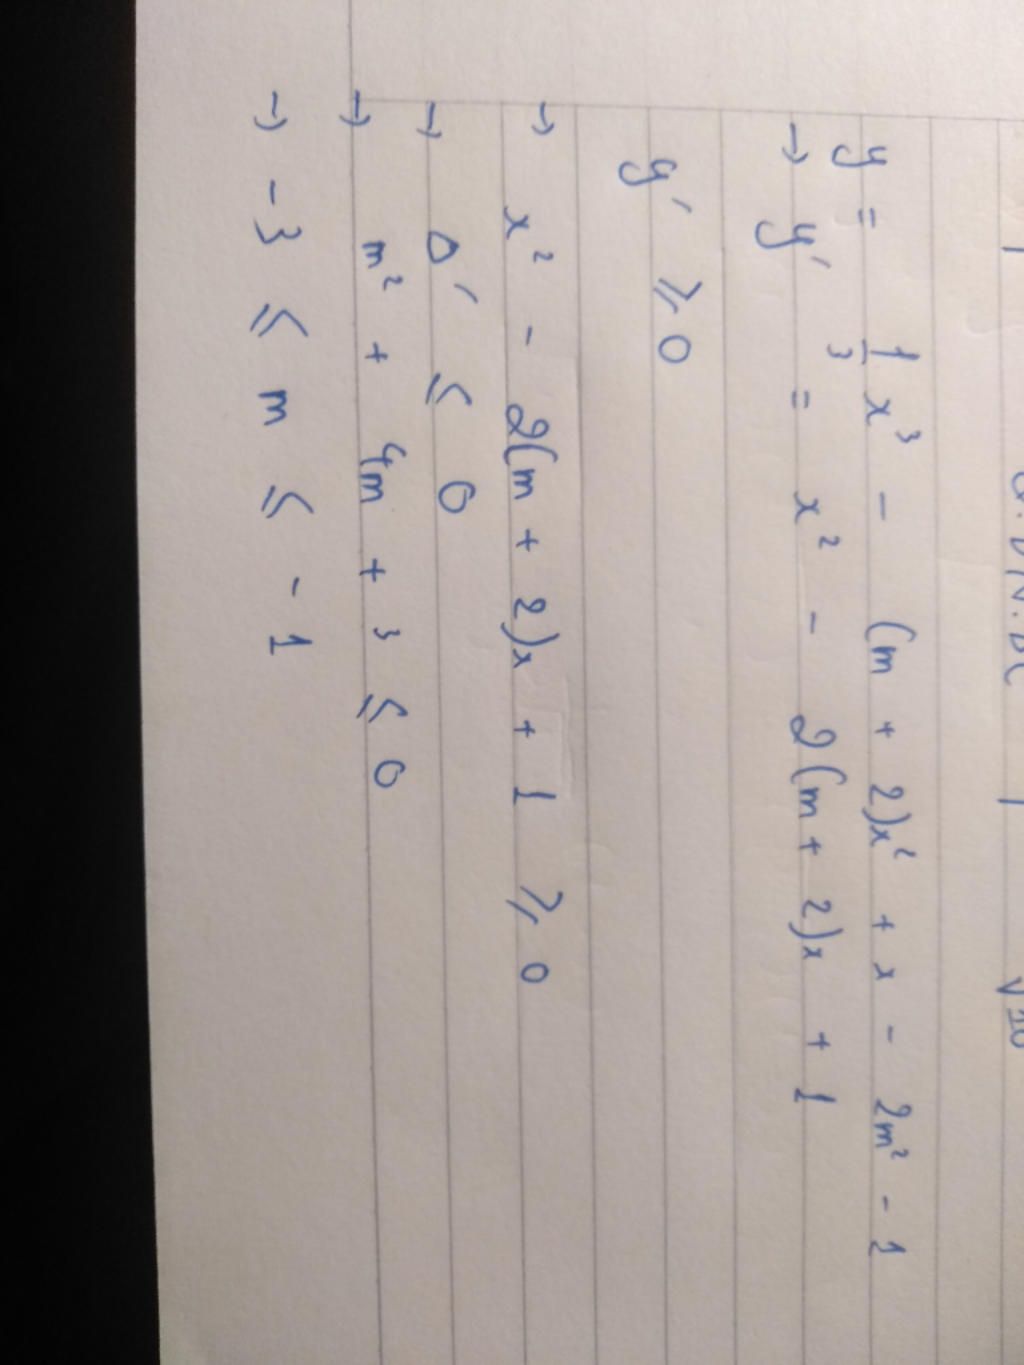 y = 1/3 x³ - (m + 2)x² + x - 2m² - 1
→ y' = x² - 2(m + 2)x + 1
y' ⩾ 0
→ x² - 2(m + 2)x + 1 ⩾ 0
→ Δ' ⩽ 0
→ m² + 4m + 3 ⩽ 0
→ -3 ⩽ m ⩽ -1